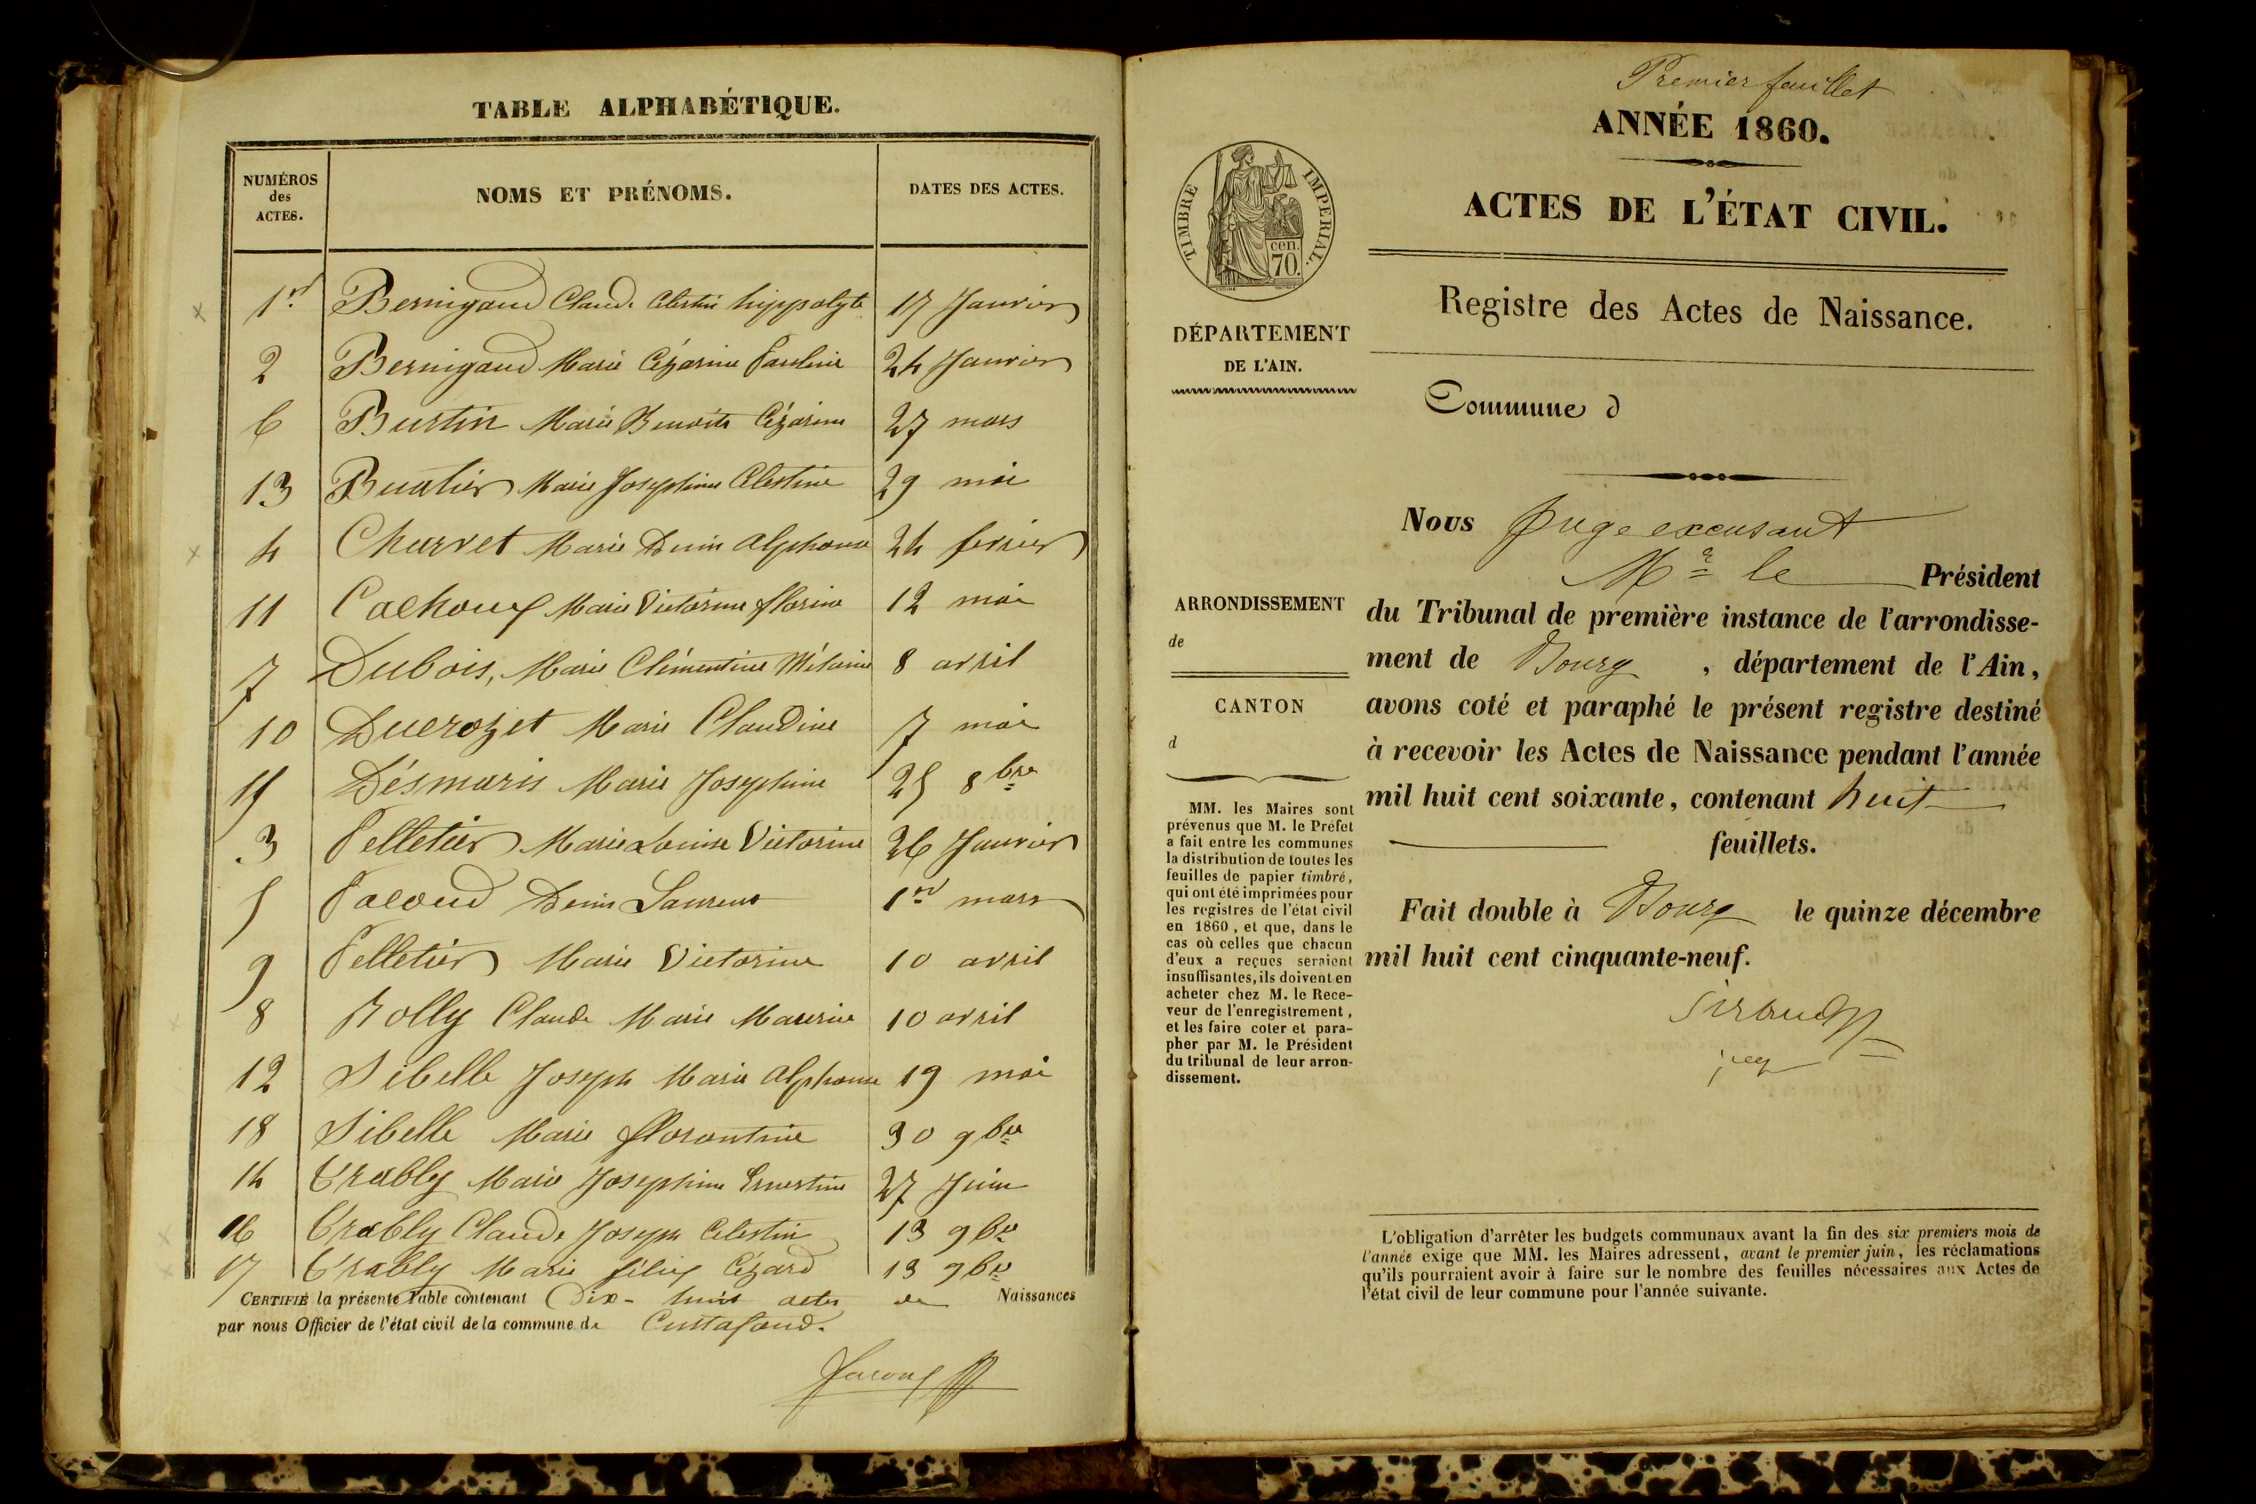 TABLE ALPHABÉTIQUE.
NUMÉROS des ACTES.
NOMS ET PRÉNOMS.
DATES DES ACTES.
1er Bernigaud Claude Célestin hippolyte 17 Janvier
2 Bernigaud Marie Cézarine Pauline 24 Janvier
6 Burtin Marie Benoite Cézarine 27 mars
13 Buatier Marie Josephine Célestine 29 mai
4 Charvet Marie Denis Alphonse 24 fevrier
11 Cachoux Marie Victorine florine 12 mai
7 Dubois, Marie Clémentine Mélanie 8 avril
10 Ducrozet Marie Claudine 7 mai
15 Désmaris Marie Josephine 25 8bre
3 Pelletier Marie Louise Victorine 26 Janvier
5 Pacoud Denis Laurent 1er mars
9 Pelletier Marie Victorine 10 avril
8 Rolly Claude Marie Maurice 10 avril
12 Sibelle Joseph Marie Alphonse 19 mai
18 Sibelle Marie florantine 30 9bre
14 Trably Marie Josephine Ernestine 27 Juin
16 Trably Claude Joseph Celestin 13 9bre
17 Trably Marie félix Cézard 13 9bre
CERTIFIÉ la présente Table contenant Dix-huit actes de Naissances
par nous Officier de l'état civil de la commune de Curtafond.
Premier feuillet
ANNÉE 1860.
TIMBRE IMPERIAL.
cen.
70.
ACTES DE L'ÉTAT CIVIL.
Registre des Actes de Naissance.
DÉPARTEMENT
DE L'AIN.
Commune d
Nous Juge excusant
Mr le Président
du Tribunal de première instance de l'arrondisse-
ment de Bourg, département de l'Ain,
avons coté et paraphé le présent registre destiné
à recevoir les Actes de Naissance pendant l'année
mil huit cent soixante, contenant huit
feuillets.
Fait double à Bourg le quinze décembre
mil huit cent cinquante-neuf.
ARRONDISSEMENT
de
CANTON
d
MM. les Maires sont
prévenus que M. le Préfet
a fait entre les communes
la distribution de toutes les
feuilles de papier timbré,
qui ont été imprimées pour
les registres de l'état civil
en 1860, et que, dans le
cas où celles que chacun
d'eux a reçues seraient
insuffisantes, ils doivent en
acheter chez M. le Rece-
veur de l'enregistrement,
et les faire coter et para-
pher par M. le Président
du tribunal de leur arron-
dissement.
L'obligation d'arrêter les budgets communaux avant la fin des six premiers mois de
l'année exige que MM. les Maires adressent, avant le premier juin, les réclamations
qu'ils pourraient avoir à faire sur le nombre des feuilles nécessaires aux Actes de
l'état civil de leur commune pour l'année suivante.